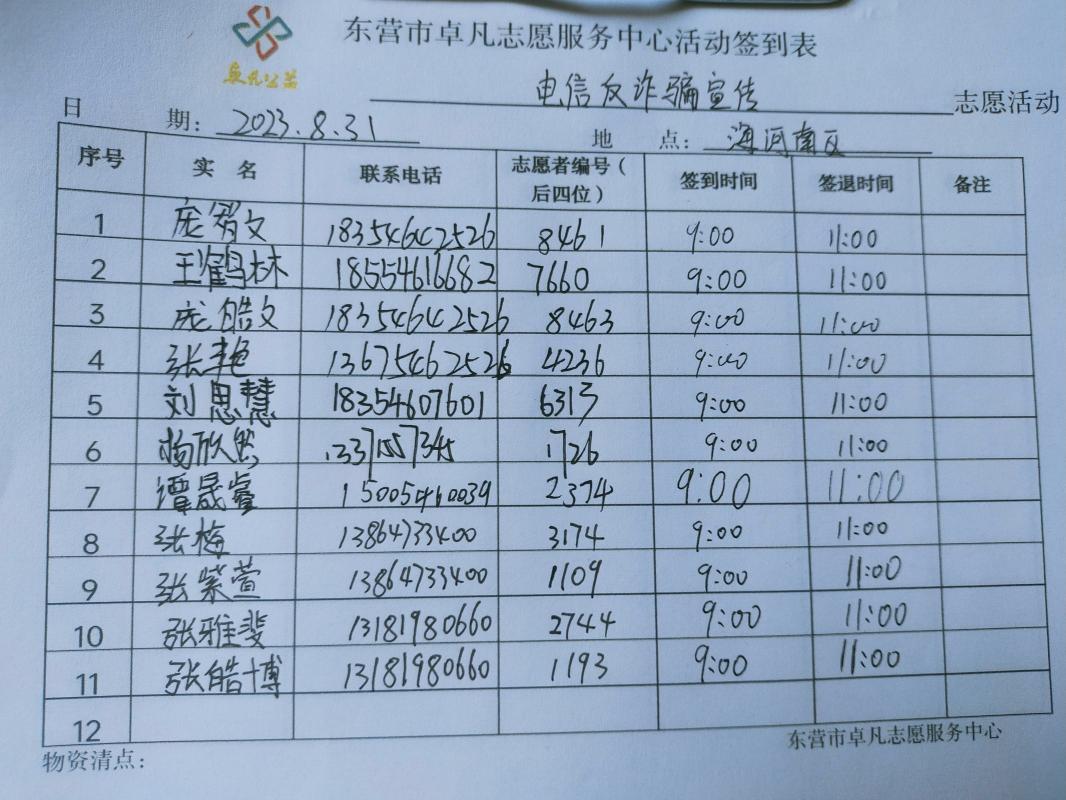 东营市卓凡志愿服务中心活动签到表
卓凡公益
电信反诈骗宣传 志愿活动
日期：2023.8.31 地点：海河南区
序号 实名 联系电话 志愿者编号（后四位） 签到时间 签退时间 备注
1 庞智文 18354642526 8461 9:00 11:00
2 王鹤林 18554616682 7660 9:00 11:00
3 庞皓文 18354642526 8463 9:00 11:00
4 张艳 13675462526 4236 9:00 11:00
5 刘思慧 18354607601 6313 9:00 11:00
6 杨欣然 1726 9:00 11:00
7 谭晟睿 15005460039 2374 9:00 11:00
8 张梅 13864733400 3174 9:00 11:00
9 张紫萱 13864733400 1109 9:00 11:00
10 张雅斐 13181980660 2744 9:00 11:00
11 张皓博 13181980660 1193 9:00 11:00
12
物资清点： 东营市卓凡志愿服务中心